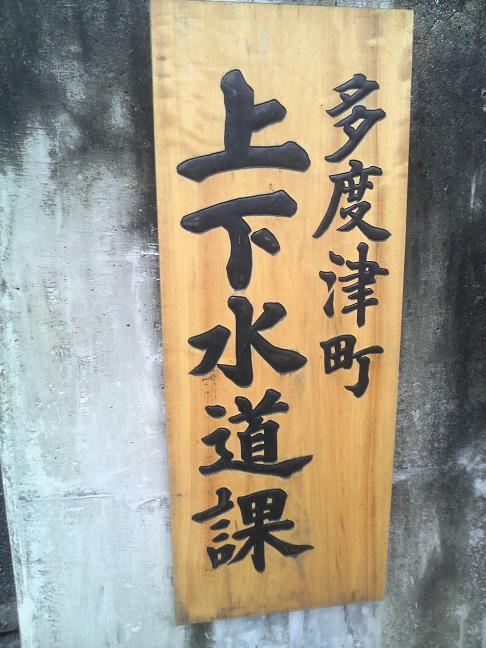 多度津町
上下水道課